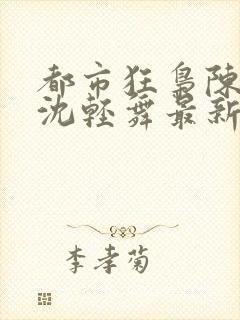 都市狂梟陳
沈輕舞最新
李孝菊